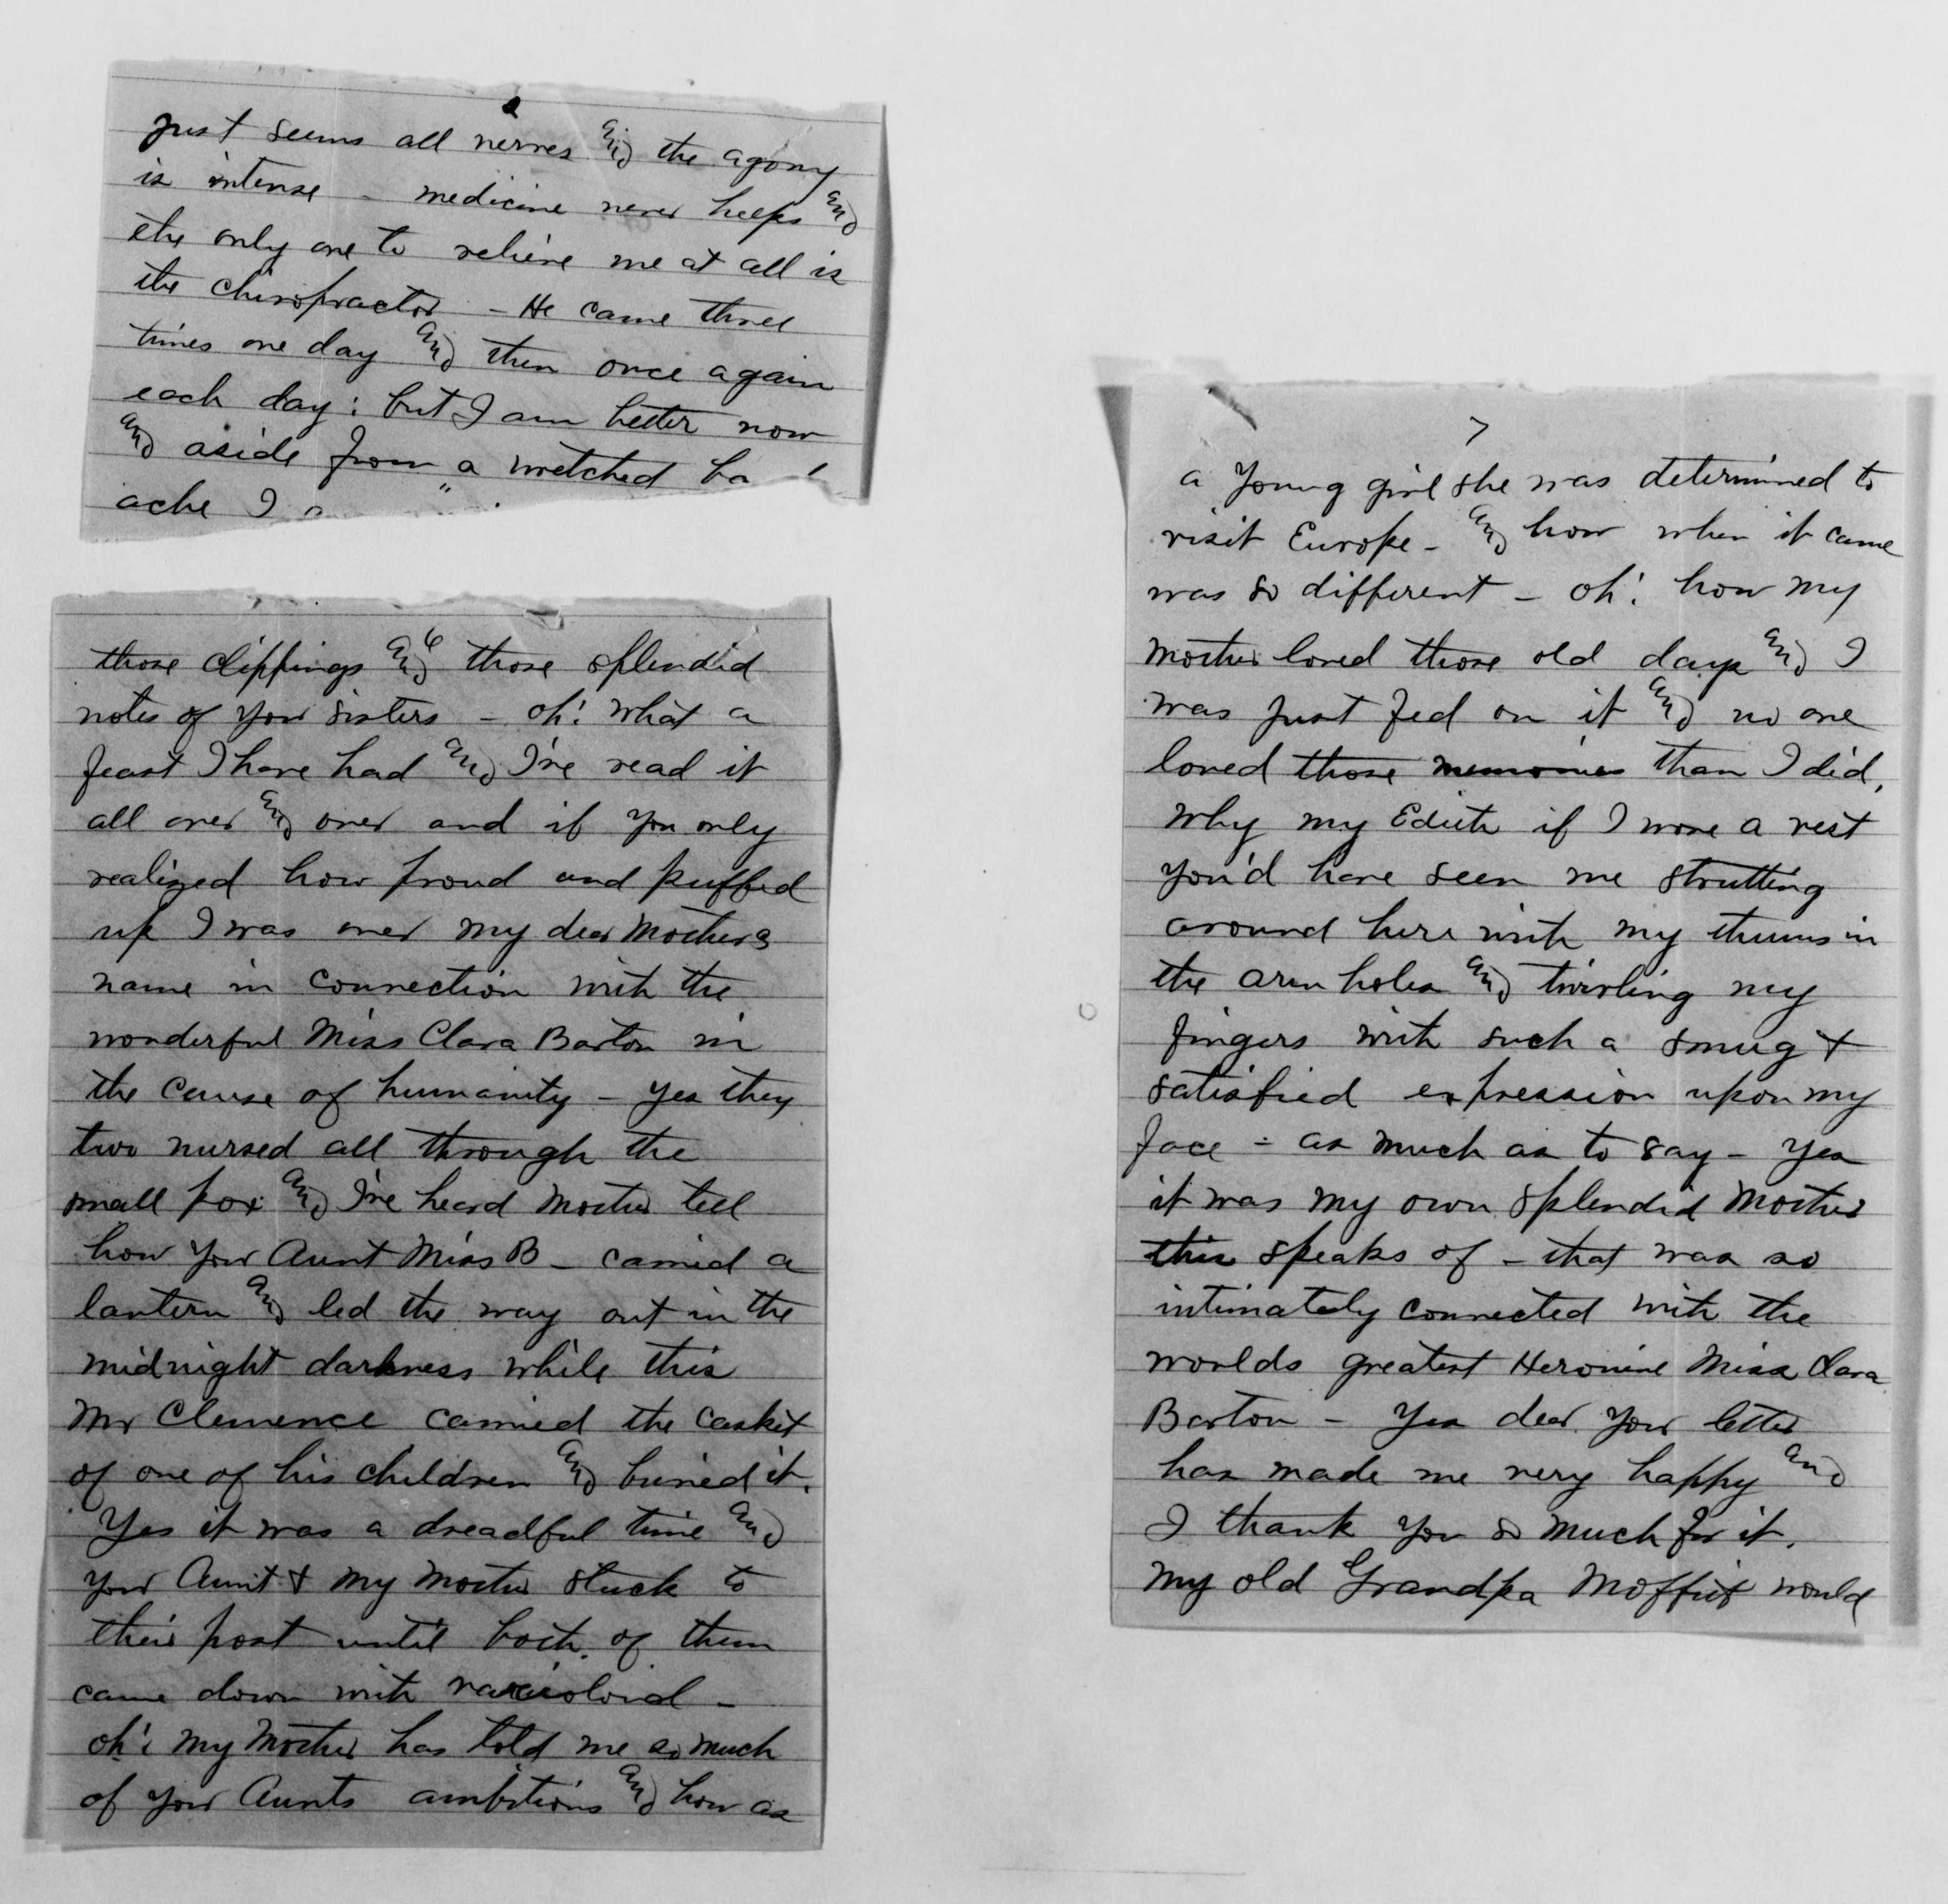 2
just seems all nerves and the agony
is intense - medicine never helps and
the only one to relieve me at all is
the chiropractor - He came three
times one day and then once again
each day: but I am better now
and aside from a wretched
ache I
6
those clippings and those splendid
notes of your sisters - oh! what a
feast I have had and I've read it
all over and over and if you only
realized how proud and puffed
up I was over my dear Mothers
name in connection with the
wonderful Miss Clara Barton in
the cause of humanity - yes they
two nursed all through the
small pox and I've heard Mother tell
how your Aunt Miss B - carried a
lantern and led the way out in the
midnight darkness while this
Mr Clemence carried the casket
of one of his children and buried it.
Yes it was a dreadful time and
your Aunt & my Mother stuck to
their post until both of them
came down with
oh! my Mother has told me so much
of your Aunts ambitions and how as
7
a young girl she was determined to
visit Europe - and how when it came
was so different - oh! how my
Mother loved those old days and I
was just fed on it and no one
loved those memories than I did,
why my Edith if I wore a vest
you'd have seen me strutting
around here with my thums in
the arm holes and twirling my
fingers with such a smug &
satisfied expression upon my
face - as much as to say - yes
it was my own splendid Mother
this speaks of - that was so
intimately connected with the
worlds greatest Heroine Miss Clara
Barton - Yes dear your letter
has made me very happy and
I thank you so much for it.
My old Grandpa Moffitt would